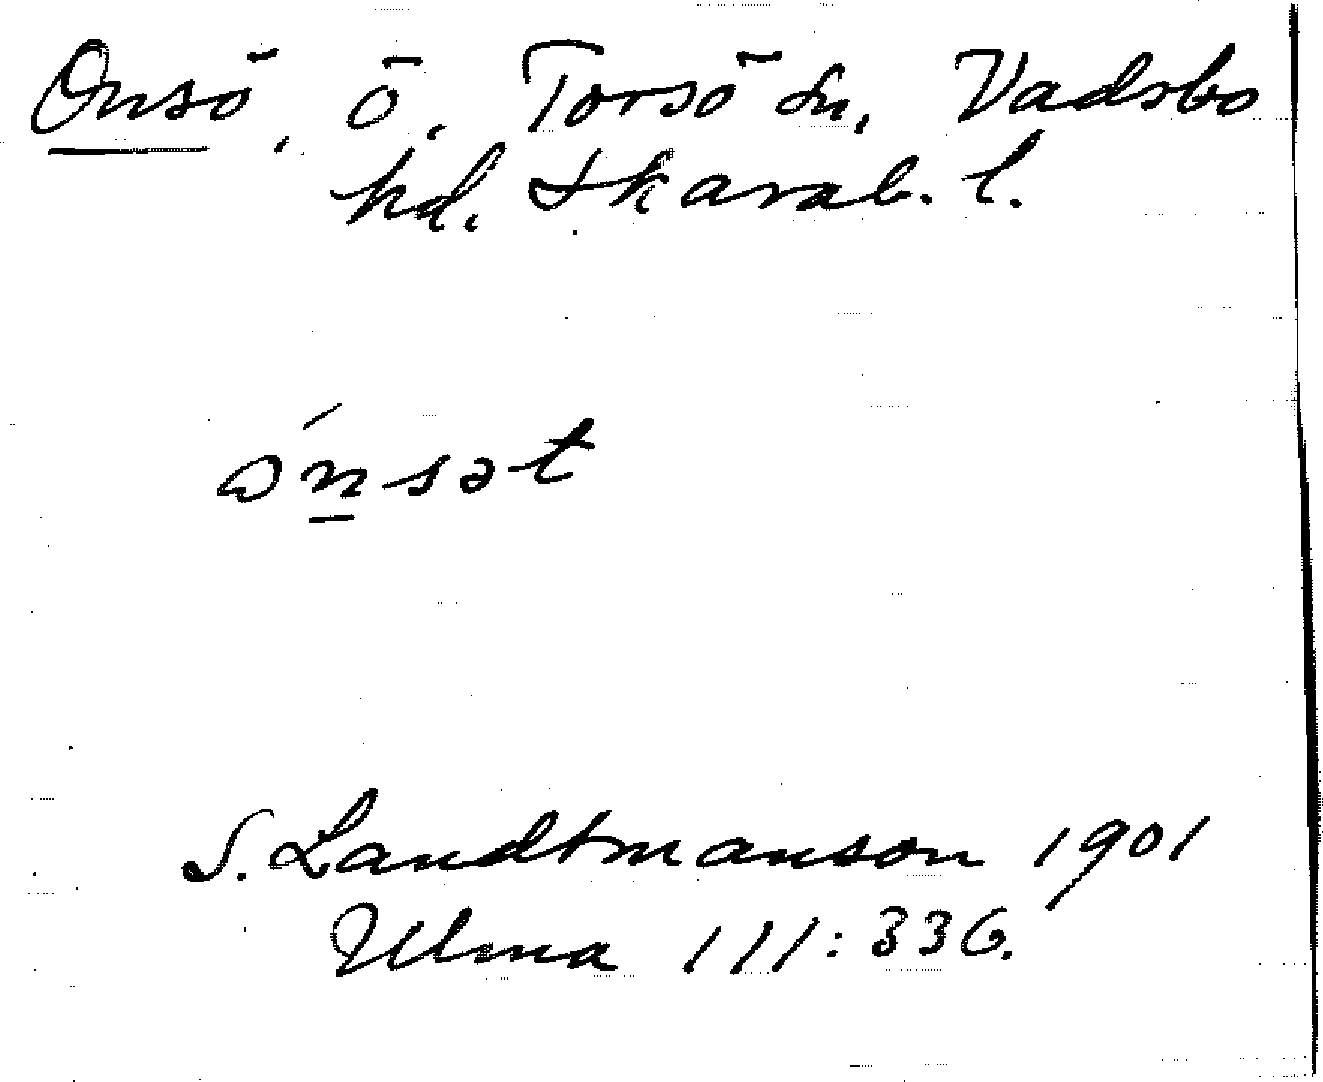 Onsö, ö, Torsö sn, Vadsbo
hd. Skarab. l.
ónsət
S. Landtmanson 1901
Ulma 111:336.